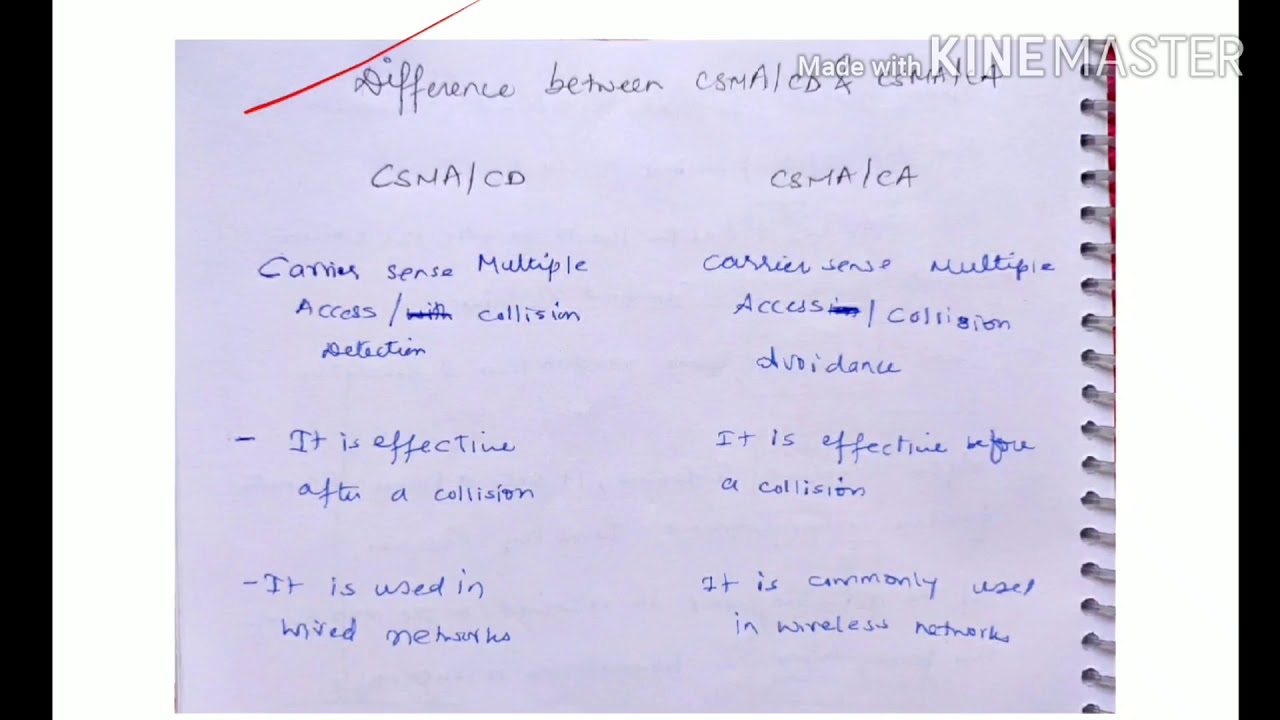 Made with KINEMASTER
Difference between CSMA/CD & CSMA/CA
CSMA/CD
CSMA/CA
Carrier sense Multiple
Access/with collision
Detection
Carrier sense Multiple
Access/Collision
Avoidance
- It is effective
after a collision
It is effective before
a collision
- It is used in
wired networks
It is commonly used
in wireless networks